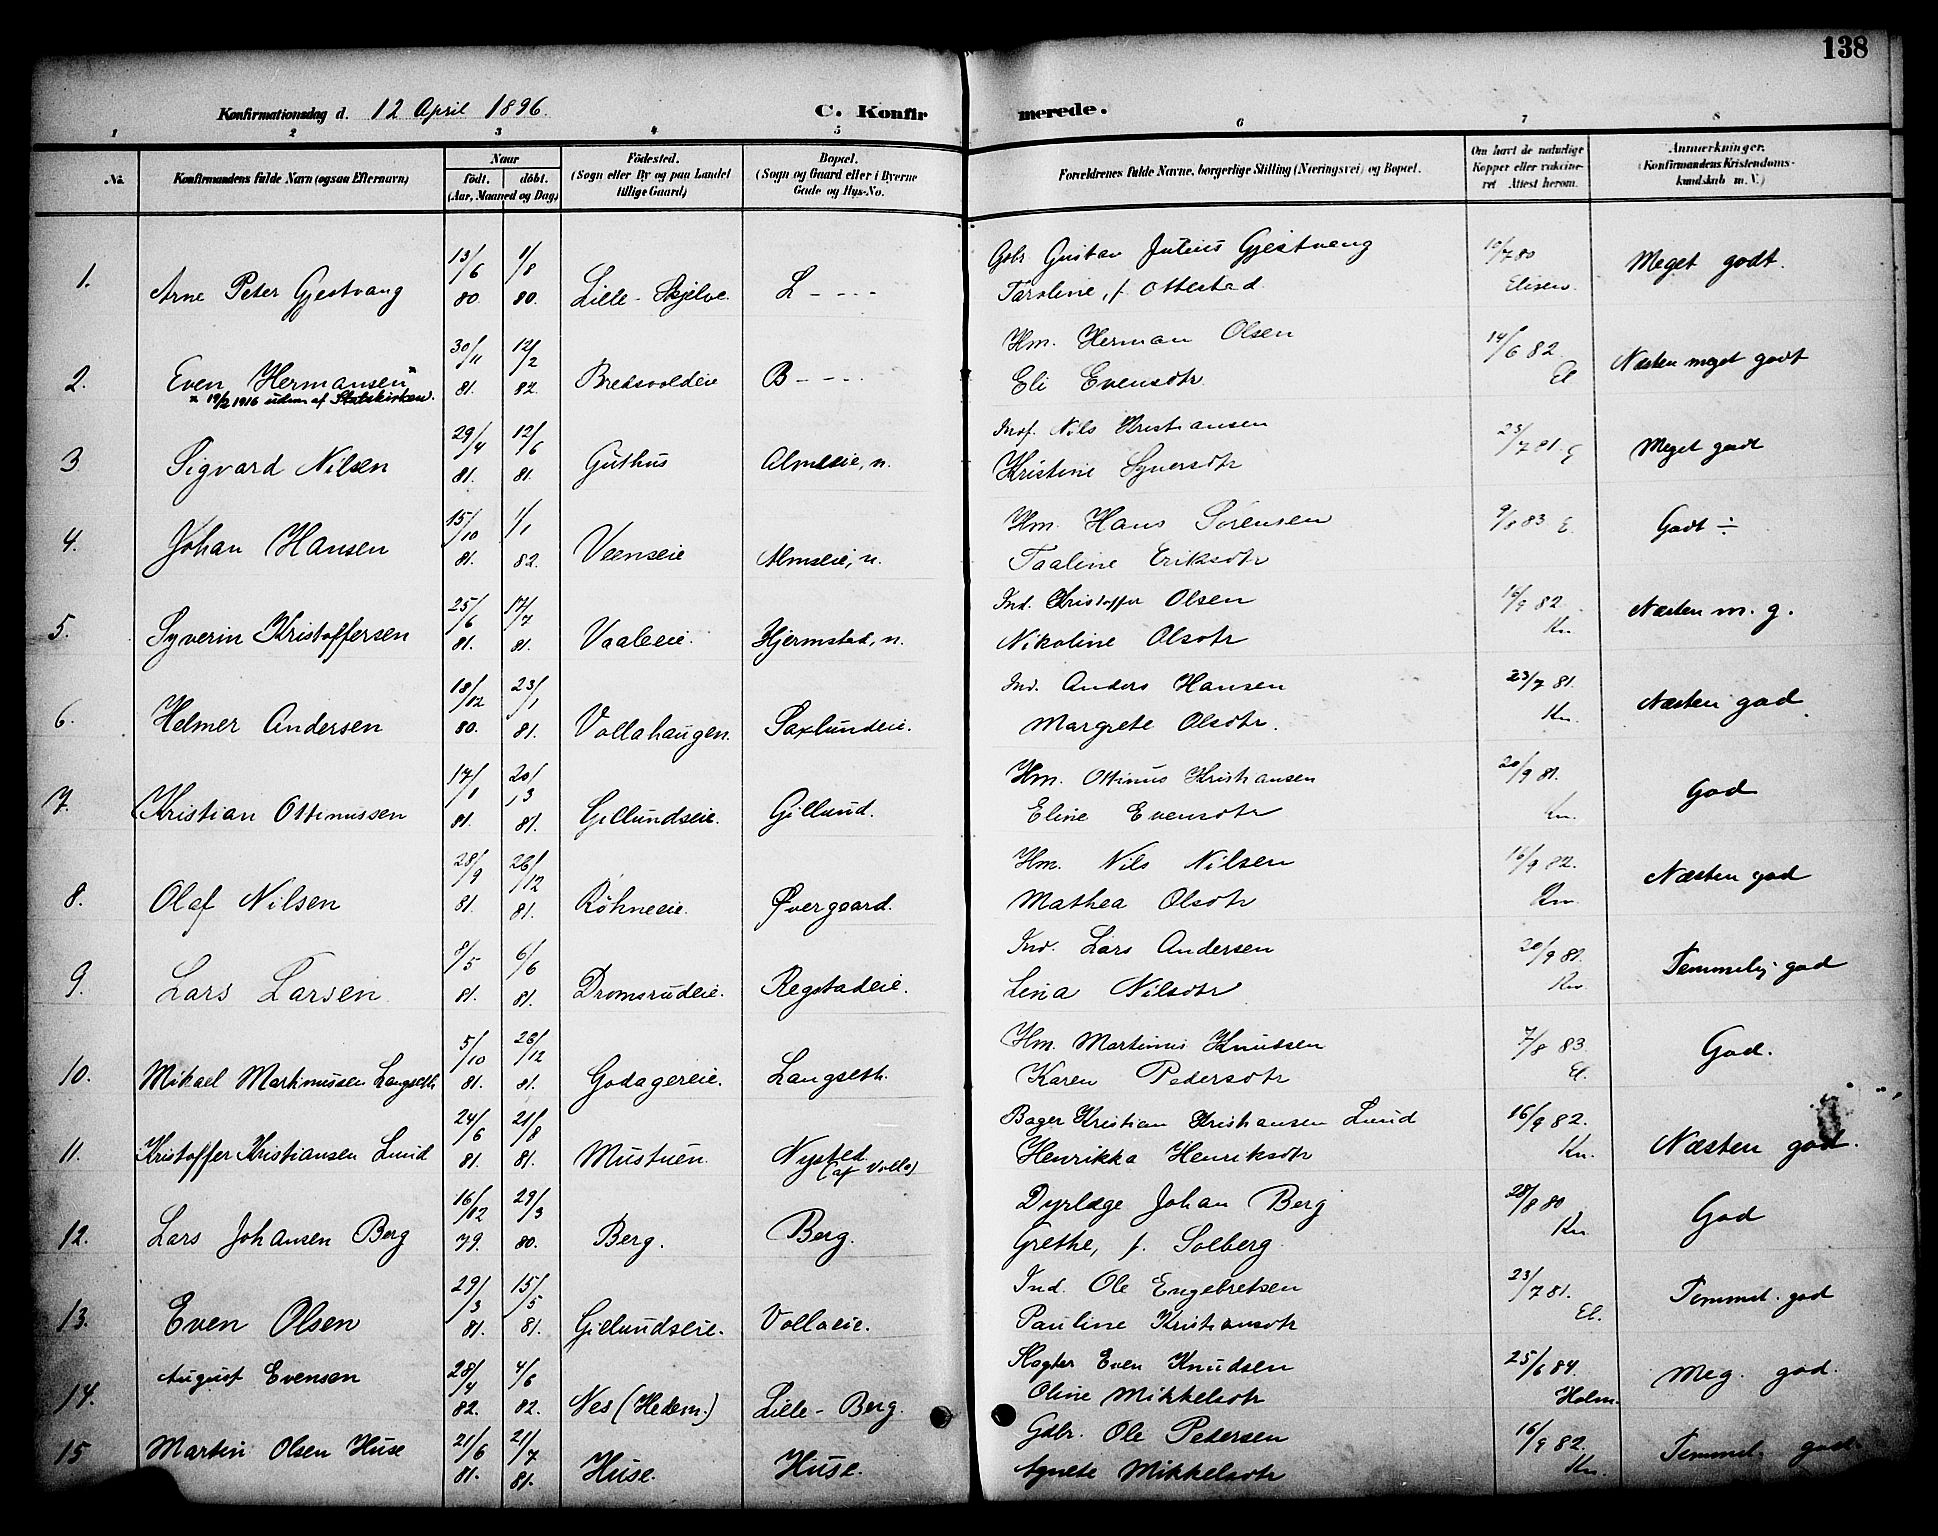 138
Konfirmationsdag d. 12 April 1896. C. Konfirmerede.
1 2 3 4 5 6 7 8
No. Konfirmandens fulde Navn (ogsaa Efternavn) Naar født. døbt. (Aar, Maaned og Dag) Fødested. (Sogn eller By og paa Landet tillige Gaard) Bopæl. (Sogn og Gaard eller i Byerne Gade og Hus-No. Forældrenes fulde Navne, borgerlige Stilling (Næringsvei) og Bopæl. Om havt de naturlige Kopper eller vakcineret Attest herom. Anmærkninger. (Konfirmandens Kristendomskundskab m. V.)
1. Arne Peter Gjestvang 13/6 80. 1/8 80. Lille-Skjelve. L - - - Gbr Gustav Julius Gjestvang 10/7 80 Meget godt.
Taroline, f. Ottestad. Elisen.
2. Even Hermansen x 30/11 81. 12/2 82. Bredsvoldeie B - - - Hm. Herman Olsen 14/6 82. Næsten meget godt
x 19/2 1916 udm. af Statskirken. Eli Evensdtr. El
3 Sigvard Nilsen 29/4 81. 12/6 81. Guthus Almseie, n. Nils Kristiansen 23/7 81. E Meget godt
Kristine Syversdtr
4. Johan Hansen 15/10 81. 1/1 82. Veenseie Almseie, n. Hm. Hans Sørensen 9/8 83 E. Godt ÷
Taaline Eriksdtr
5. Syverin Kristoffersen 25/6 81. 17/7 81. Vaaleeie. Hjermstad, n. Ind. Kristoffer Olsen 16/9 82. Næsten m. g.
Nikoline Olsdtr Kn
6. Helmer Andersen 18/12 80. 23/1 81. Vollahaugen. Saxlundeie. Ind. Anders Hansen 23/7 81. Næsten god
Margrete Olsdtr. Kn.
7. Kristian Ottinussen 17/1 81. 20/3 81. Gillundseie. Gillund. Hm. Ottinus Kristiansen 20/9 81. God
Eline Evensdtr Kn.
8. Olaf Nilsen 28/9 81. 26/12 81. Røhneeie. Øvergaard. Hm. Nils Nilsen 16/9 82. Næsten god
Mathea Olsdtr Kn.
9. Lars Larsen 8/5 81. 6/6 81. Dromsrudeie. Regstadeie. Ind. Lars Andersen 20/9 81. Temmelig god
Lina Nilsdtr Kn.
10. Mikael Martinussen Langseth 5/10 81. 26/12 81. Godagereie. Langseth. Hm. Martinus Knutsen 7/8 83 God.
Karen Pedersdtr El.
11. Kristoffer Kristiansen Lund 24/6 81. 21/8 81. Mustuen. Nysted (af Volla) Bager Kristian Kristiansen Lund 16/9 82. Næsten god.
Henrikka Henriksdtr Kn.
12. Lars Johansen Berg 16/12 79. 29/3 80. Berg. Berg. Dyrlæge Johan Berg 28/8 80 God
Grethe, f. Solberg. Kn.
13. Even Olsen 29/3 81. 15/5 81. Gillundseie. Vollaeie. Ind. Ole Engebretsen 23/7 81. Temmel. god
Pauline Kristiansdtr El.
14. August Evensen 28/4 82. 4/6 82. Nes (Hedem.) Lille-Berg. Slagter Even Knudsen 25/6 84. Meg. god.
Oline Mikkelsdtr Holm.
15 Martin Olsen Huse 21/6 81. 21/7 81. Huse. Huse. Gdbr. Ole Pedersen 16/9 82. Temmel. god.
Agnete Mikkelsdtr Kn.